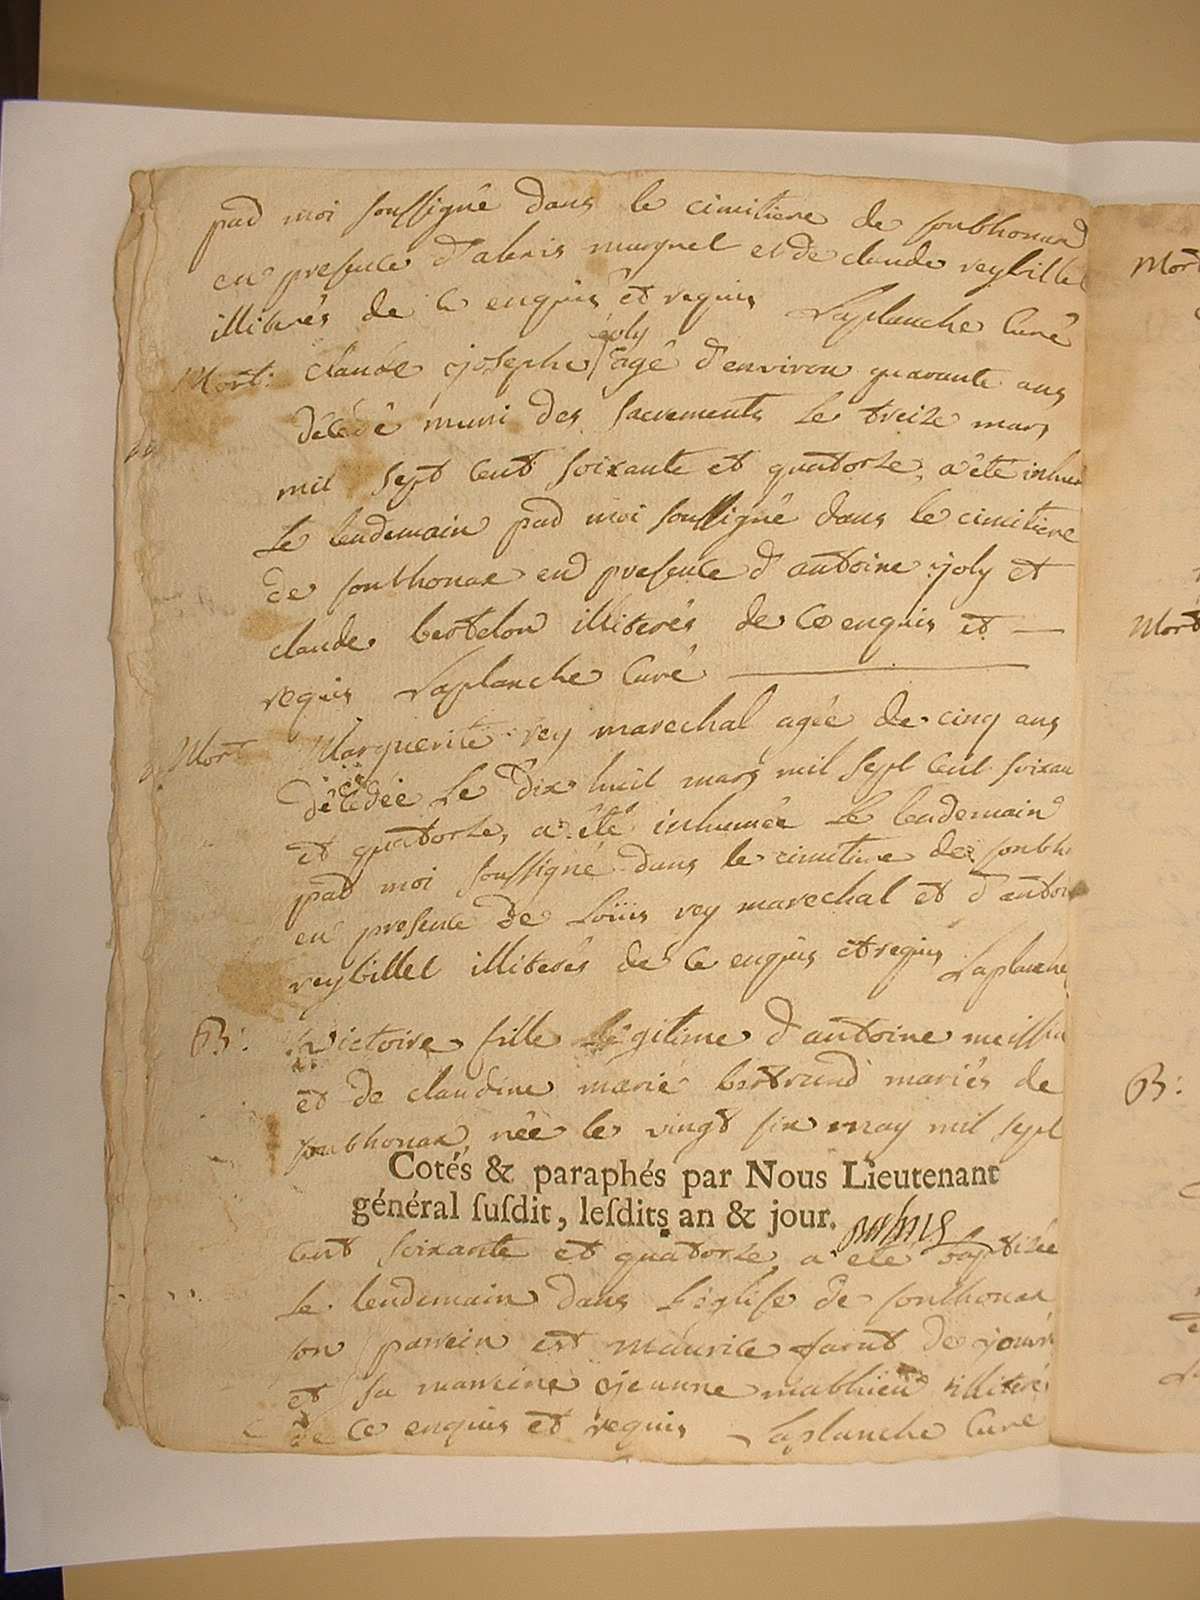 par moi soussigné dans le cimitiere de sonthonax
en presence d'alexis marquet et de claude reybillet
illiterés de ce enquis et requis Laplanche Curé
Mort: claude joseph joly agé d'environ quarante ans
décédé muni des sacrements le treize mars
mil sept cent soixante et quatorze, a été inhumé
Le lendemain par moi soussigné dans le cimitiere
de sonthonax en presence d'antoine joly et
claude bertelon illiterés de ce enquis et
requis Laplanche Curé
Mort Marguerite rey marechal agée de cinq ans
décédée Le dix huit mars mil sept cent soixan
et quatorze, a été inhumée Le lendemain
par moi soussigné dans le cimitiere de sonth
en presence de Loüis rey marechal et d'antoi
reybillet illiterés de ce enquis et requis Laplanche
B: victoire fille Légitime d'antoine
et de claudine marie bertrand mariés de
sonthonax, née le vingt six may mil sept
Cotés & paraphés par Nous Lieutenant
général ſuſdit, leſdits an & jour.
cent soixante et quatorze, a été baptisée
Le lendemain dans L'église de sonthonax
son parrein est maurice de
et sa marreine jeanne mathieu illiterés
de ce enquis et requis Laplanche Curé
Mort
Mort
B: